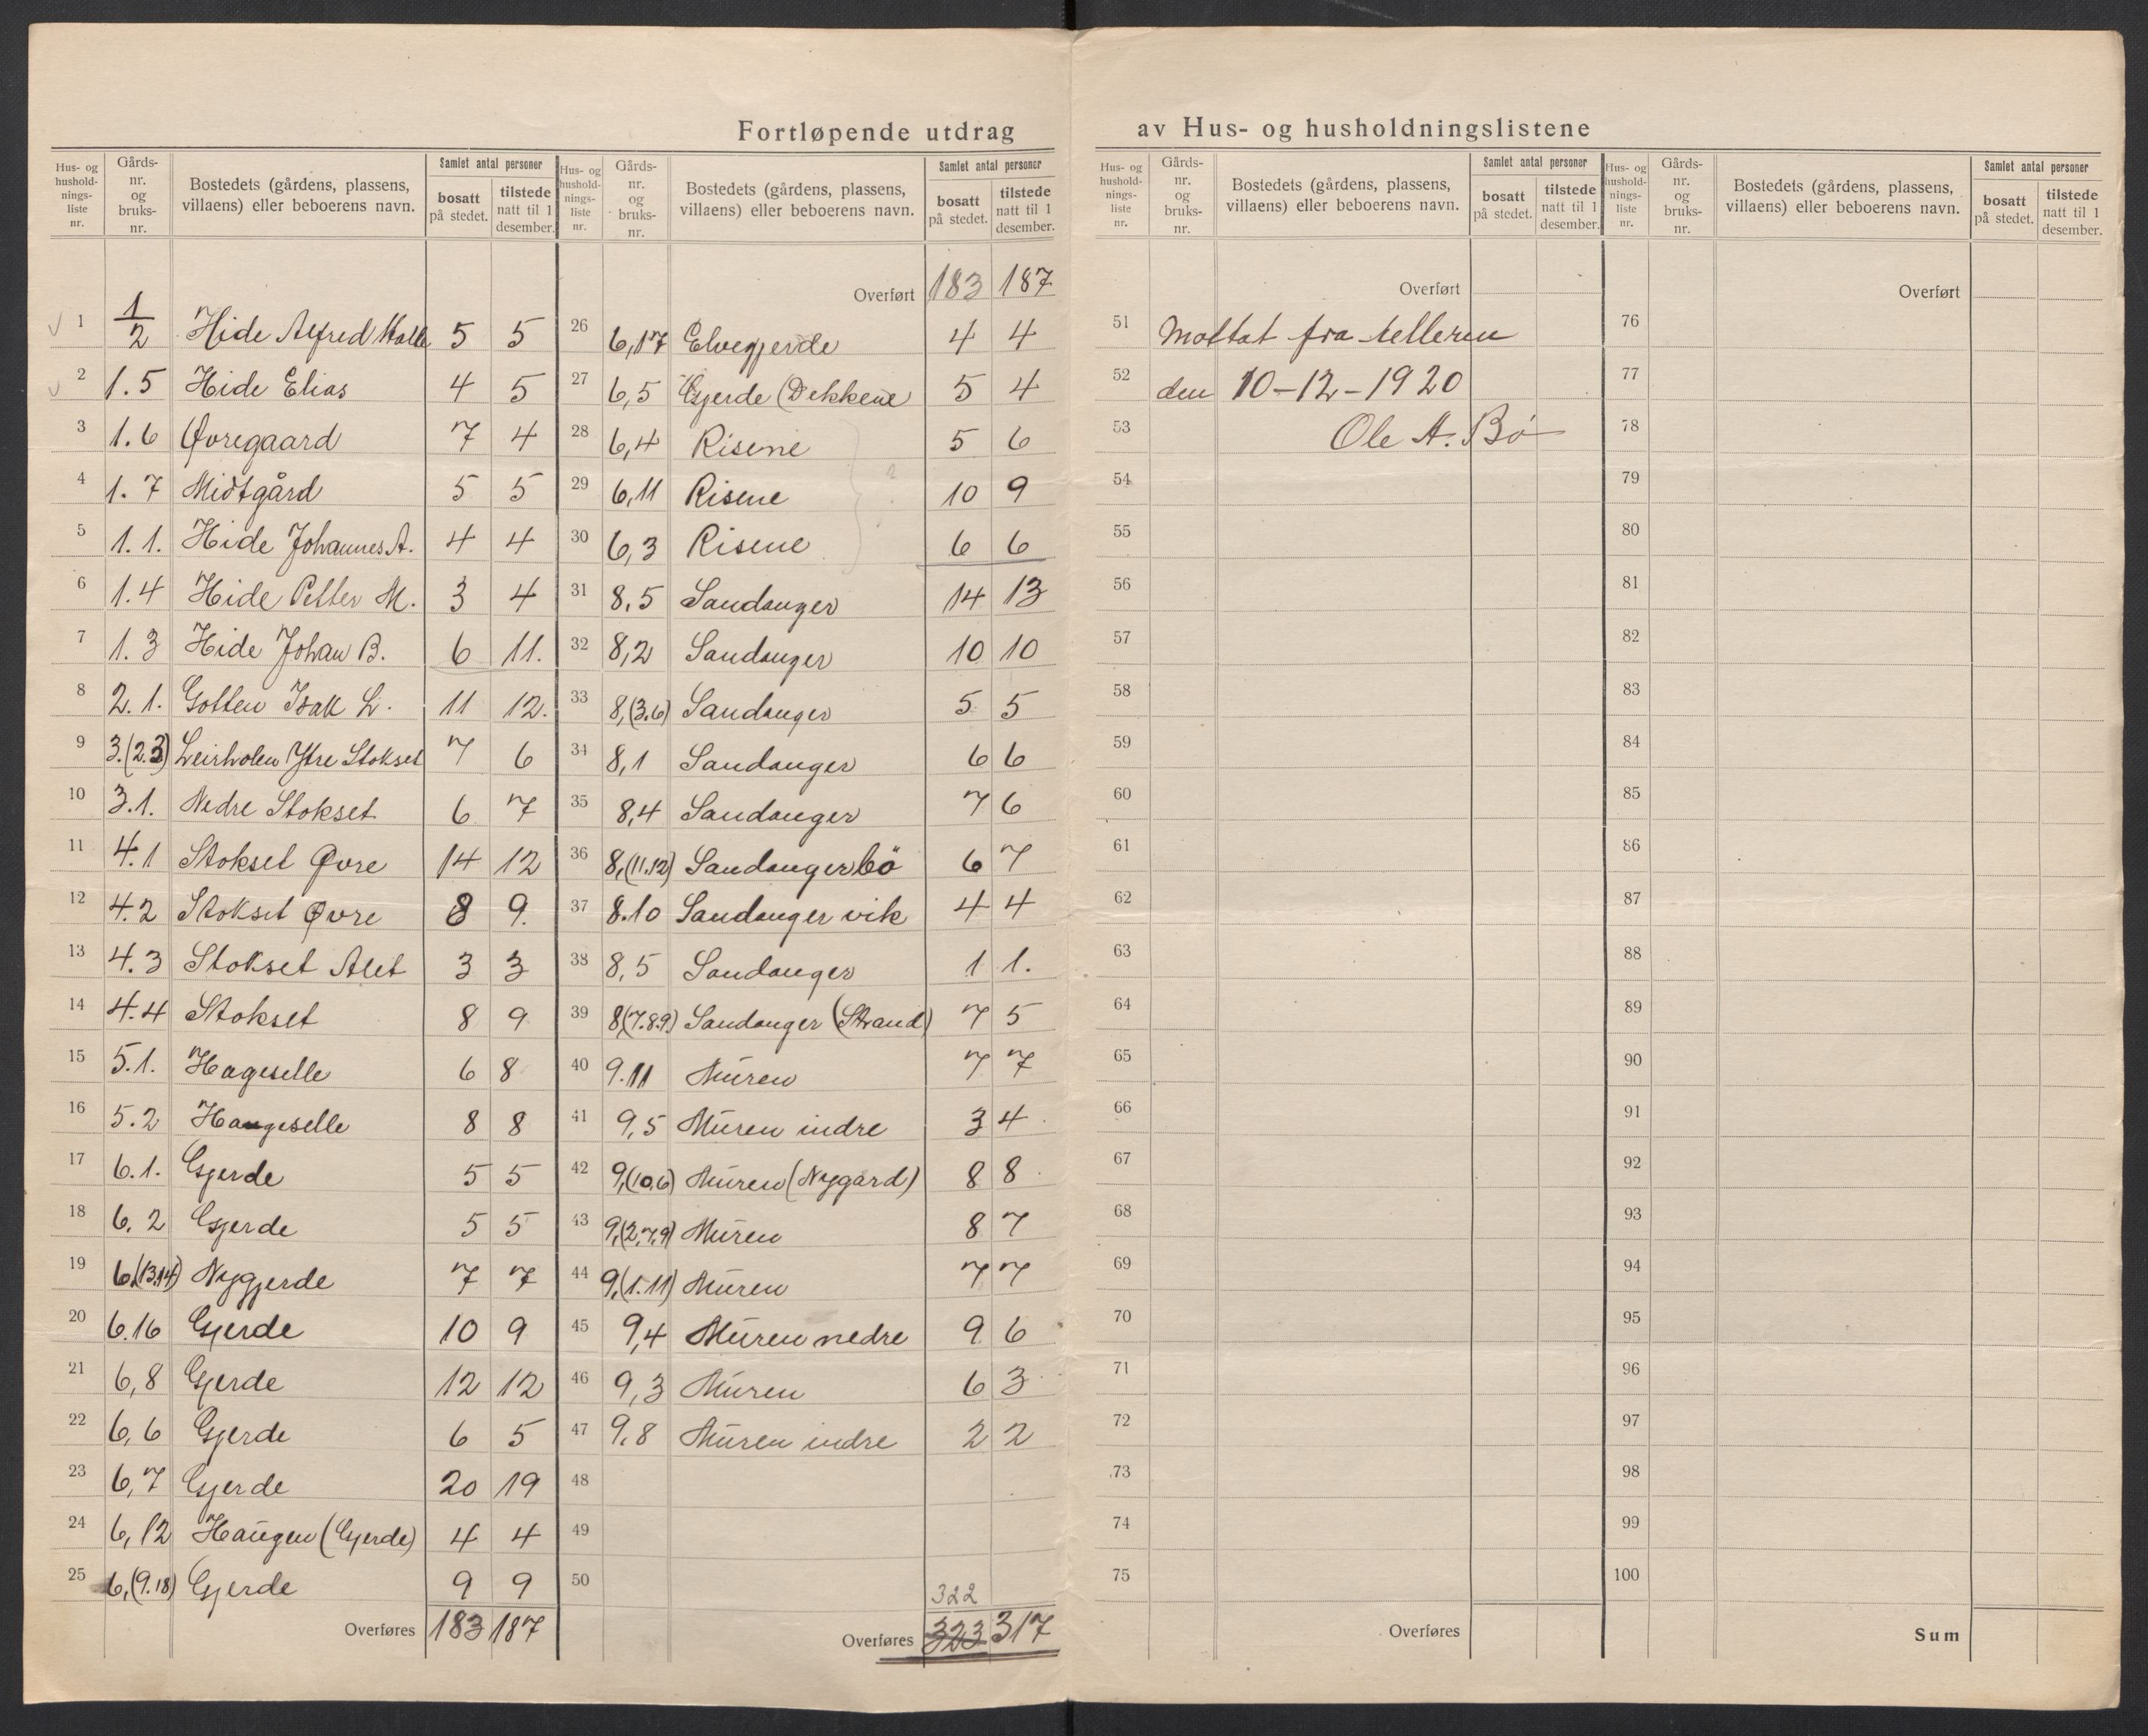 Fortløpende utdrag av Hus- og husholdningslistene
Hus- og husholdnings-liste nr. | Gårds-nr. og bruks-nr. | Bostedets (gårdens, plassens, villaens) eller beboerens navn. | Samlet antal personer | bosatt på stedet. | tilstede natt til 1 desember.
1 1/2 Hide Alfred 5 5
2 1.5 Hide Elias 4 5
3 1.6 Øvregaard 7 4
4 1.7 Midtgård 5 5
5 1.1. Hide Johannes A. 4 4
6 1.4 Hide Petter M. 3 4
7 1.3 Hide Johan B. 6 11.
8 2.1. Gotten Isak L. 11 12.
9 3.(2.3) Leirholen Ytre Stokset 7 6
10 3.1. Nedre Stokset 6 7
11 4.1 Stokset Øvre 14 12
12 4.2 Stokset Øvre 8 9.
13 4.3 Stokset Alet 3 3
14 4.4 Stokset 8 9
15 5.1. Hageselle 6 8
16 5.2 Haugeselle 8 8
17 6.1. Gjerde 5 5
18 6.2 Gjerde 5 5
19 6,(13.14) Nygjerde 7 7
20 6.16 Gjerde 10 9
21 6,8 Gjerde 12 12
22 6,6 Gjerde 6 5
23 6,7 Gjerde 20 19
24 6,12 Haugen (Gjerde) 4 4
25 6,(9.18) Gjerde 9 9
Overføres 183 187
Hus- og husholdnings-liste nr. | Gårds-nr. og bruks-nr. | Bostedets (gårdens, plassens, villaens) eller beboerens navn. | Samlet antal personer | bosatt på stedet. | tilstede natt til 1 desember.
Overført 183 187
26 6,17 Elvegjerde 4 4
27 6,5 Gjerde (Dekkene) 5 4
28 6,4 Risene 5 6
29 6,11 Risene 10 9
30 6,3 Risene 6 6
31 8,5 Sandanger 14 13
32 8,2 Sandanger 10 10
33 8,(3.6) Sandanger 5 5
34 8,1 Sandanger 6 6
35 8,4 Sandanger 7 6
36 8,(11.12) Sandangerbö 6 7
37 8.10 Sandanger vik 4 4
38 8,5 Sandanger 1 1.
39 8(7.8.9.) Sandanger (Strand) 7 5
40 9.11 Muren 7 7
41 9,5 Muren indre 3 4
42 9,(10,6) Muren (Nygård) 8 8
43 9,(2.7.9) Muren 8 7
44 9,(1.11) Muren 7 7
45 9,4 Muren nedre 9 6
46 9,3 Muren 6 3
47 9.8 Muren indre 2 2
48
49
50
322
Overføres 323 317
Hus- og husholdnings-liste nr. | Gårds-nr. og bruks-nr. | Bostedets (gårdens, plassens, villaens) eller beboerens navn. | Samlet antal personer | bosatt på stedet. | tilstede natt til 1 desember.
Overført
51 Mottat fra telleren
52 den 10-12-1920
53 Ole A. Bø
54
55
56
57
58
59
60
61
62
63
64
65
66
67
68
69
70
71
72
73
74
75
Overføres
Hus- og husholdnings-liste nr. | Gårds-nr. og bruks-nr. | Bostedets (gårdens, plassens, villaens) eller beboerens navn. | Samlet antal personer | bosatt på stedet. | tilstede natt til 1 desember.
Overført
76
77
78
79
80
81
82
83
84
85
86
87
88
89
90
91
92
93
94
95
96
97
98
99
100
Sum